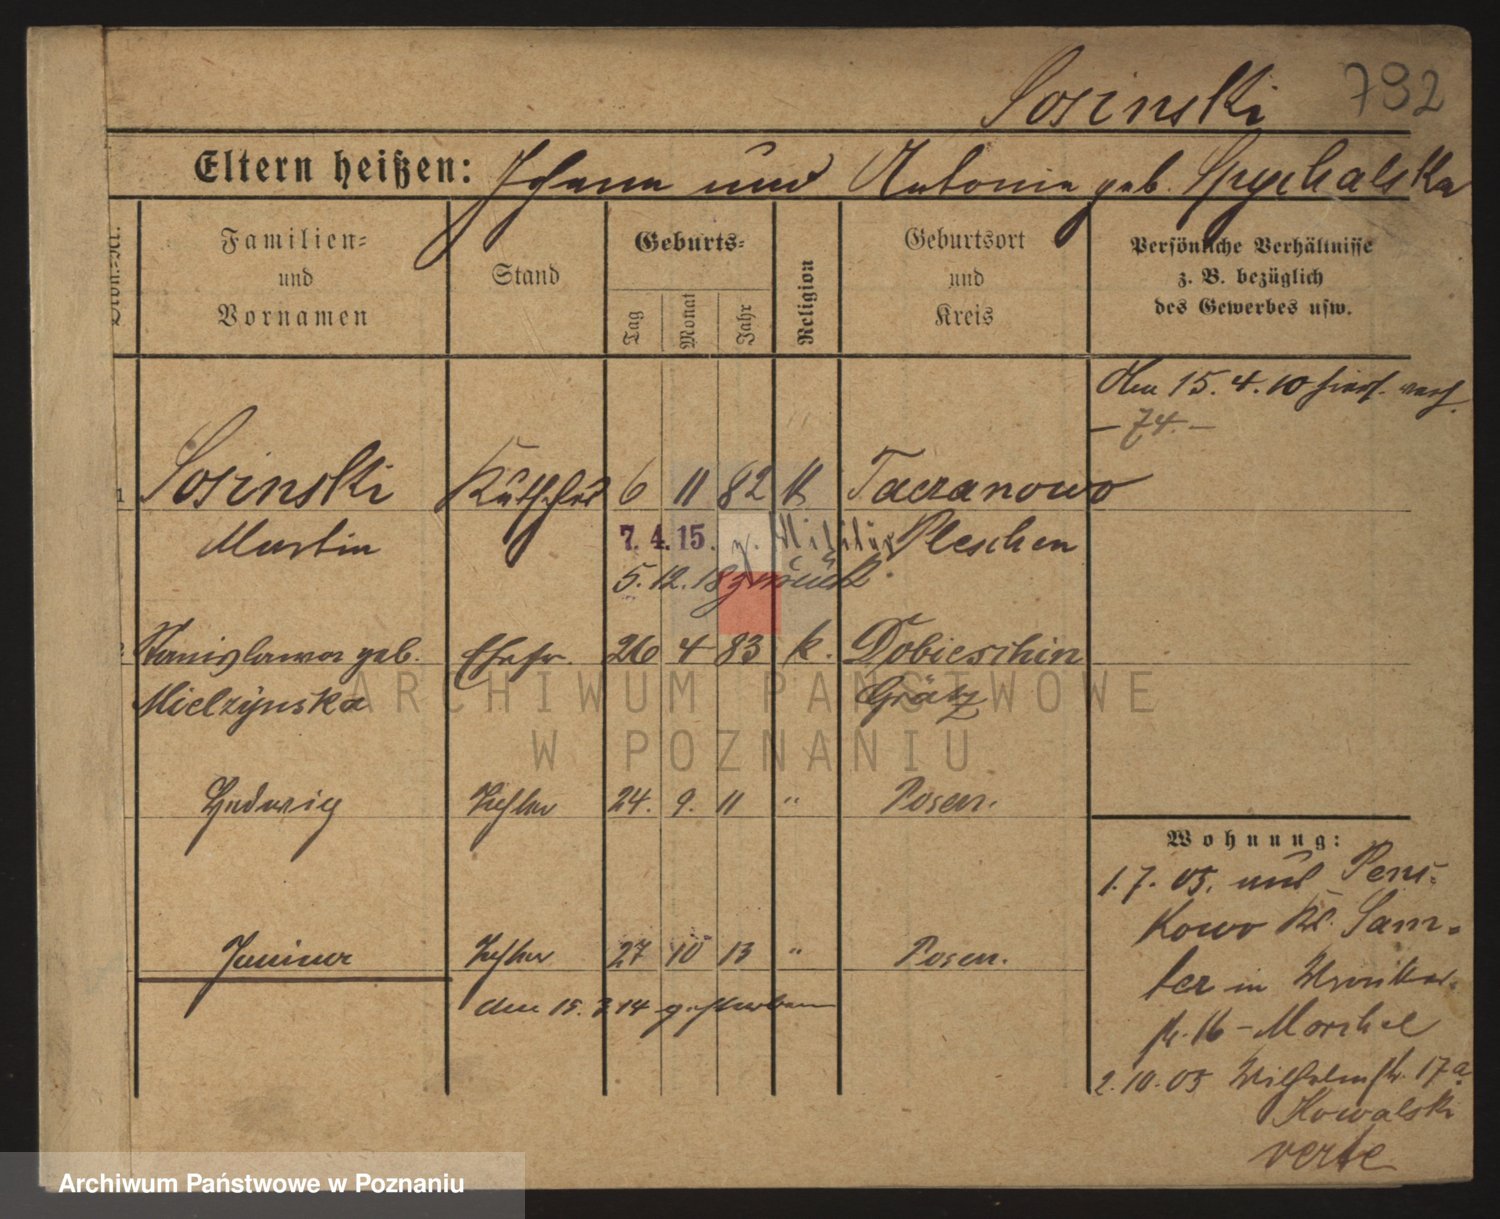 792
Sosinski
Eltern heißen: Johann und Antonie geb. Spychalska
Ordn.-Nr.
Familien- und Vornamen
Stand
Geburts-
Tag
Monat
Jahr
Religion
Geburtsort und Kreis
Persönliche Verhältnisse z. B. bezüglich des Gewerbes usw.
Den 15. 4. 10
— 74. —
1 Sosinski Kutscher 6 11 82 k Taczanowo
Martin Pleschen
7. 4. 15. z. Militär
5. 12. 18 zurück
2 Stanislawa geb. Ehefr. 26 4 83 k. Dobieschin
Mielzynska Grätz
Hedwig Tochter 24. 9. 11 " Posen.
Janina Tochter 27 10 13 " Posen.
den 15. 3 14 gestorben
Wohnung:
1. 7. 05. aus Pens-
kowo Kr. Sam-
ter in
str. 16 - Morchel
2. 10. 05 Wilhelmstr. 17a
Kowalski
verte
ARCHIWUM PAŃSTWOWE
W POZNANIU
Archiwum Państwowe w Poznaniu